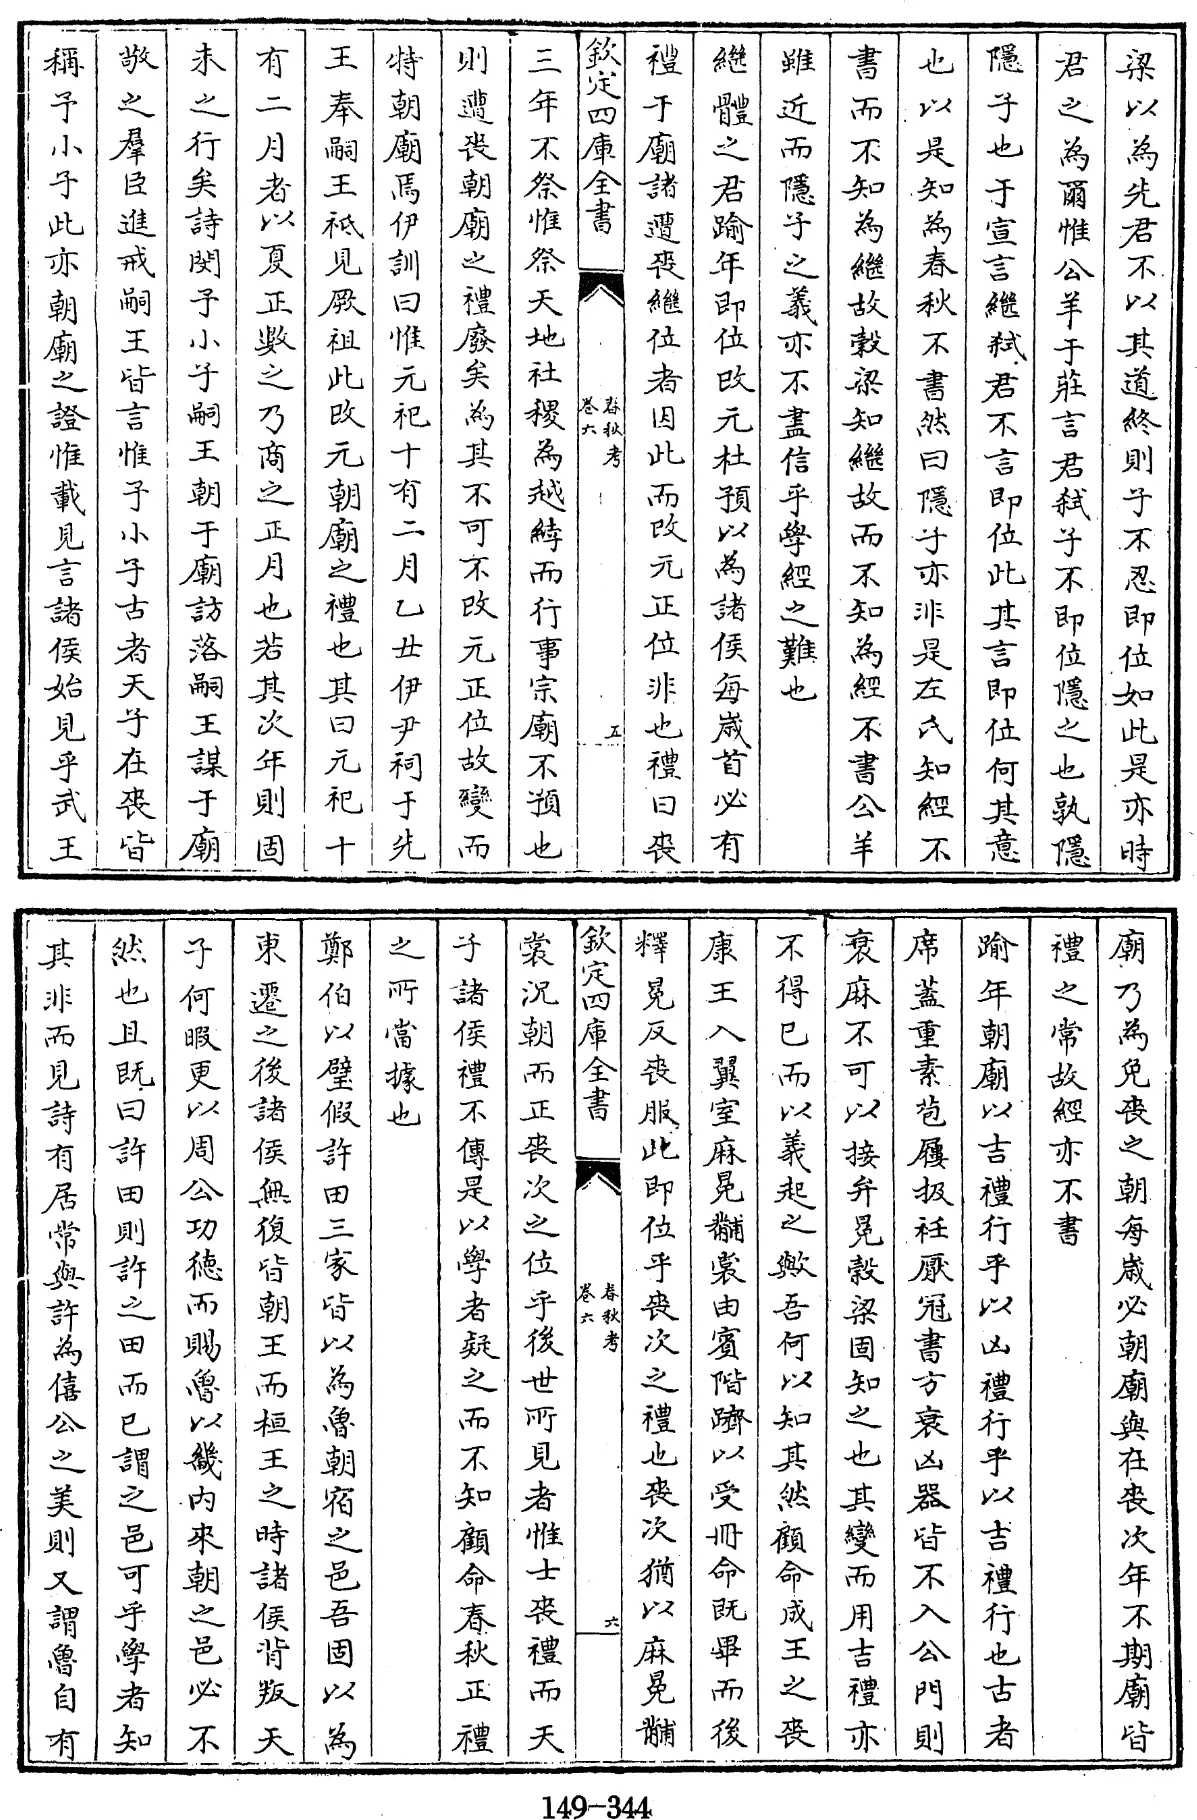 梁以為先君不以其道終則子不忍即位如此是亦時
君之為爾惟公羊于莊言君弑子不即位隱之也孰隱
隱子也于宣言繼弑君不言即位此其言即位何其意
也以是知為春秋不書然曰隱子亦非是左氏知經不
書而不知為繼故穀梁知繼故而不知為經不書公羊
雖近而隱子之義亦不盡信乎學經之難也
繼體之君踰年即位改元杜預以為諸侯每歲首必有
禮于廟諸遭喪繼位者因此而改元正位非也禮曰喪
欽定四庫全書
春秋考
卷六
五
三年不祭惟祭天地社稷為越紼而行事宗廟不預也
則遭喪朝廟之禮廢矣為其不可不改元正位故變而
特朝廟焉伊訓曰惟元祀十有二月乙丑伊尹祠于先
王奉嗣王祗見厥祖此改元朝廟之禮也其曰元祀十
有二月者以夏正數之乃商之正月也若其次年則固
未之行矣詩閔予小子嗣王朝于廟訪落嗣王謀于廟
敬之羣臣進戒嗣王皆言惟予小子古者天子在喪皆
稱予小子此亦朝廟之證惟載見言諸侯始見乎武王
廟乃為免喪之朝每歲必朝廟與在喪次年不期廟皆
禮之常故經亦不書
踰年朝廟以吉禮行乎以凶禮行乎以吉禮行也古者
席蓋重素苞屨扱衽厭冠書方衰凶器皆不入公門則
衰麻不可以接弁冕穀梁固知之也其變而用吉禮亦
不得已而以義起之歟吾何以知其然顧命成王之喪
康王入翼室麻冕黼裳由賓階隮以受冊命既畢而後
釋冕反喪服此即位乎喪次之禮也喪次猶以麻冕黼
欽定四庫全書
春秋考
卷六
六
裳況朝而正喪次之位乎後世所見者惟士喪禮而天
子諸侯禮不傳是以學者疑之而不知顧命春秋正禮
之所當據也
鄭伯以璧假許田三家皆以為魯朝宿之邑吾固以為
東遷之後諸侯無復皆朝王而桓王之時諸侯背叛天
子何暇更以周公功德而賜魯以畿内來朝之邑必不
然也且既曰許田則許之田而已謂之邑可乎學者知
其非而見詩有居常與許為僖公之美則又謂魯自有
149-344